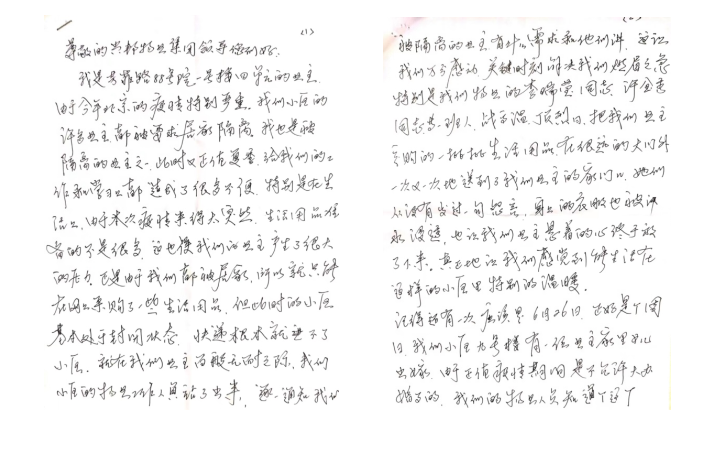 (1)
尊敬的首都物业集团领导您们好:
我是 88号院一号楼四单元的业主
由于今年北京的疫情特别严重,我们小区的
许多业主都被要求居家隔离,我也是被
隔离的业主之一,此时又正值夏季,给我们的工
作和学习上都造成了很多不便,特别是在生
活上,由于本次疫情来得太突然,生活用品准
备的不是很多,这也使我们的业主产生了很大
的压力,正是由于我们都被居家,所以就只能
在网上采购了一些生活用品,但此时的小区
基本处于封闭状态,快递根本就进不了
小区,就在我们业主百般无奈之际,我们
小区的物业工作人员站了出来,逐一通知我们
(2)
被隔离的业主有什么需求和他们讲,这让
我们万分感动,关键时刻解决我们燃眉之急
特别是我们物业的李 荣同志,许
同志等一班人,战高温,顶烈日,把我们业主
采购的一批批生活用品,在很远的大门外
一次又一次地送到了我们业主的家门口,她们
从没有发过一句怨言,身上的衣服也被汗
水浸透,也让我们业主悬着的心终于放
了下来,真正地让我们感觉到能生活在
这样的小区里特别的温暖。
记得还有一次应该是6月26日,正好是个周
日,我们小区九号楼有一位业主家里女儿
出嫁,由于正值疫情期间是不允许大办
婚事的,我们的物业人员知道了这个